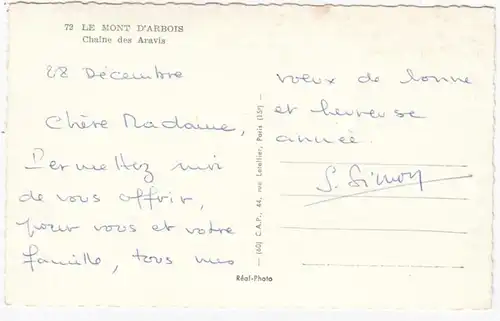 72 LE MONT D'ARBOIS
Chaîne des Aravis
28 Décembre
Chère Madame,
Permettez moi
de vous offrir,
pour vous et votre
famille, tous mes
voeux de bonne
et heureuse
année.
S. Simon
(60) C.A.P., 44, rue Letellier, Paris (15e)
Réal-Photo